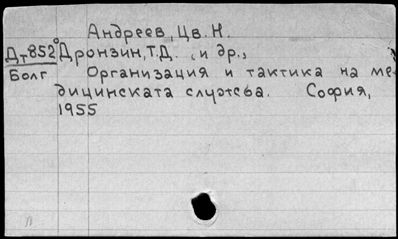 Андреев, Цв. Н.
Дт852 Дронзин, Т.Д., и др.,
Болг Организация и тактика на ме-
дицинската служба. София,
1955